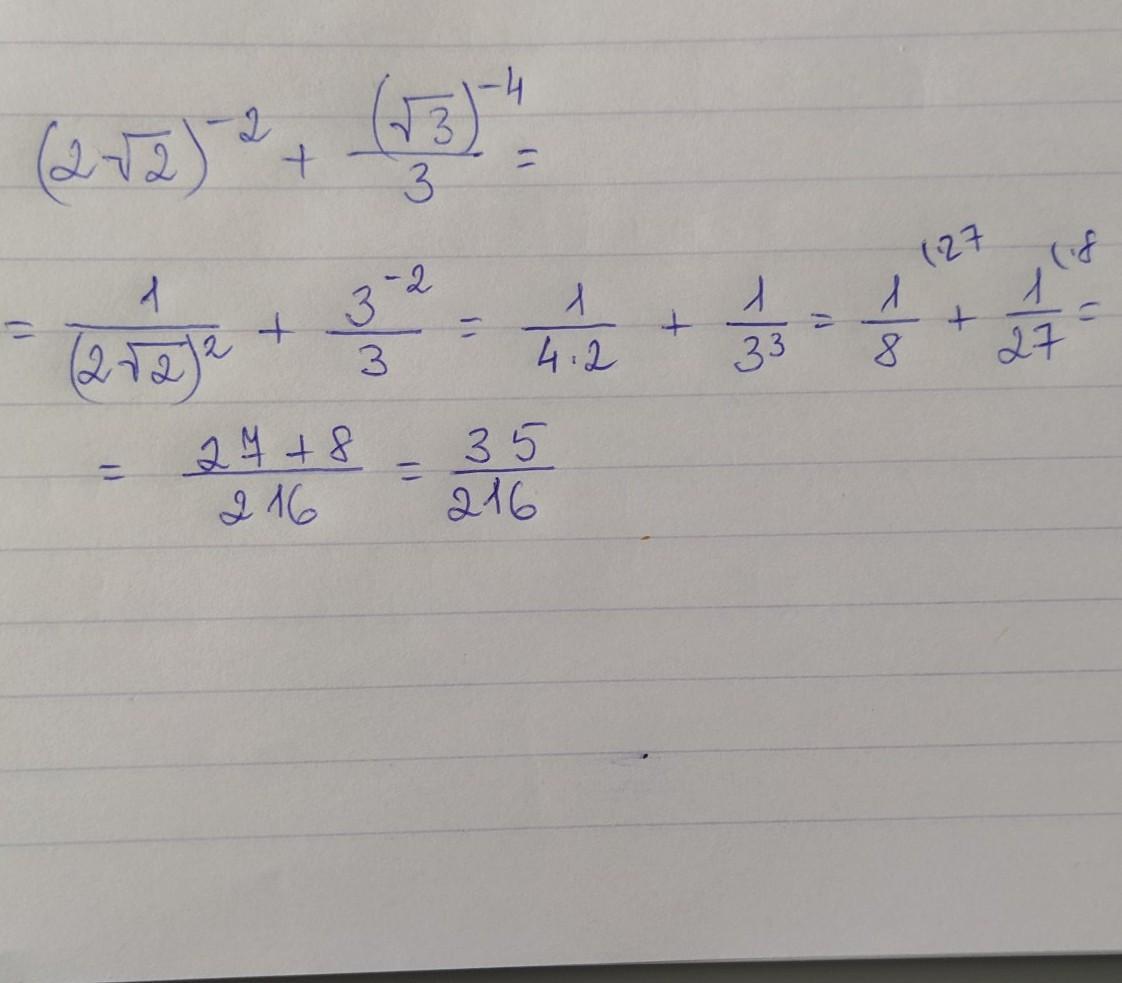 (2√2)⁻² + (√3)⁻⁴/3 =
= 1/(2√2)² + 3⁻²/3 = 1/(4·2) + 1/3³ = 1/8 (·27 + 1/27 (·8 =
= (27+8)/216 = 35/216